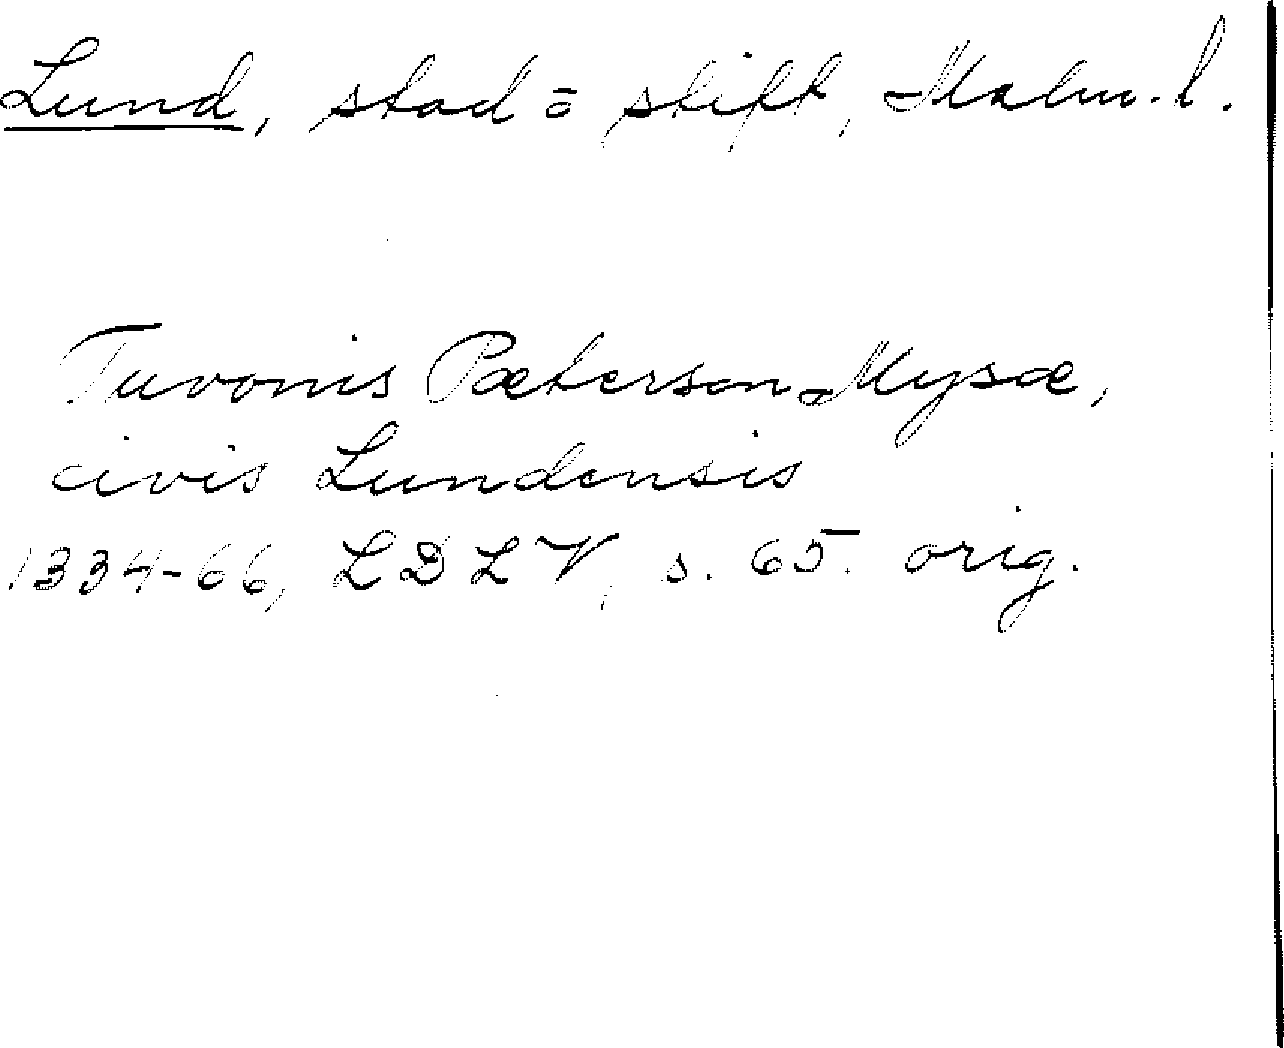 Lund, stad o stift, Malm. l.
Tuvonis Pæterson Mysæ,
civis Lundensis
1334-66, LDLV, s. 65. orig.